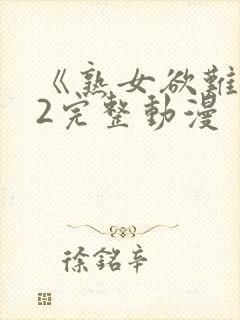 《熟女欲難
2完整動漫
徐銘辛